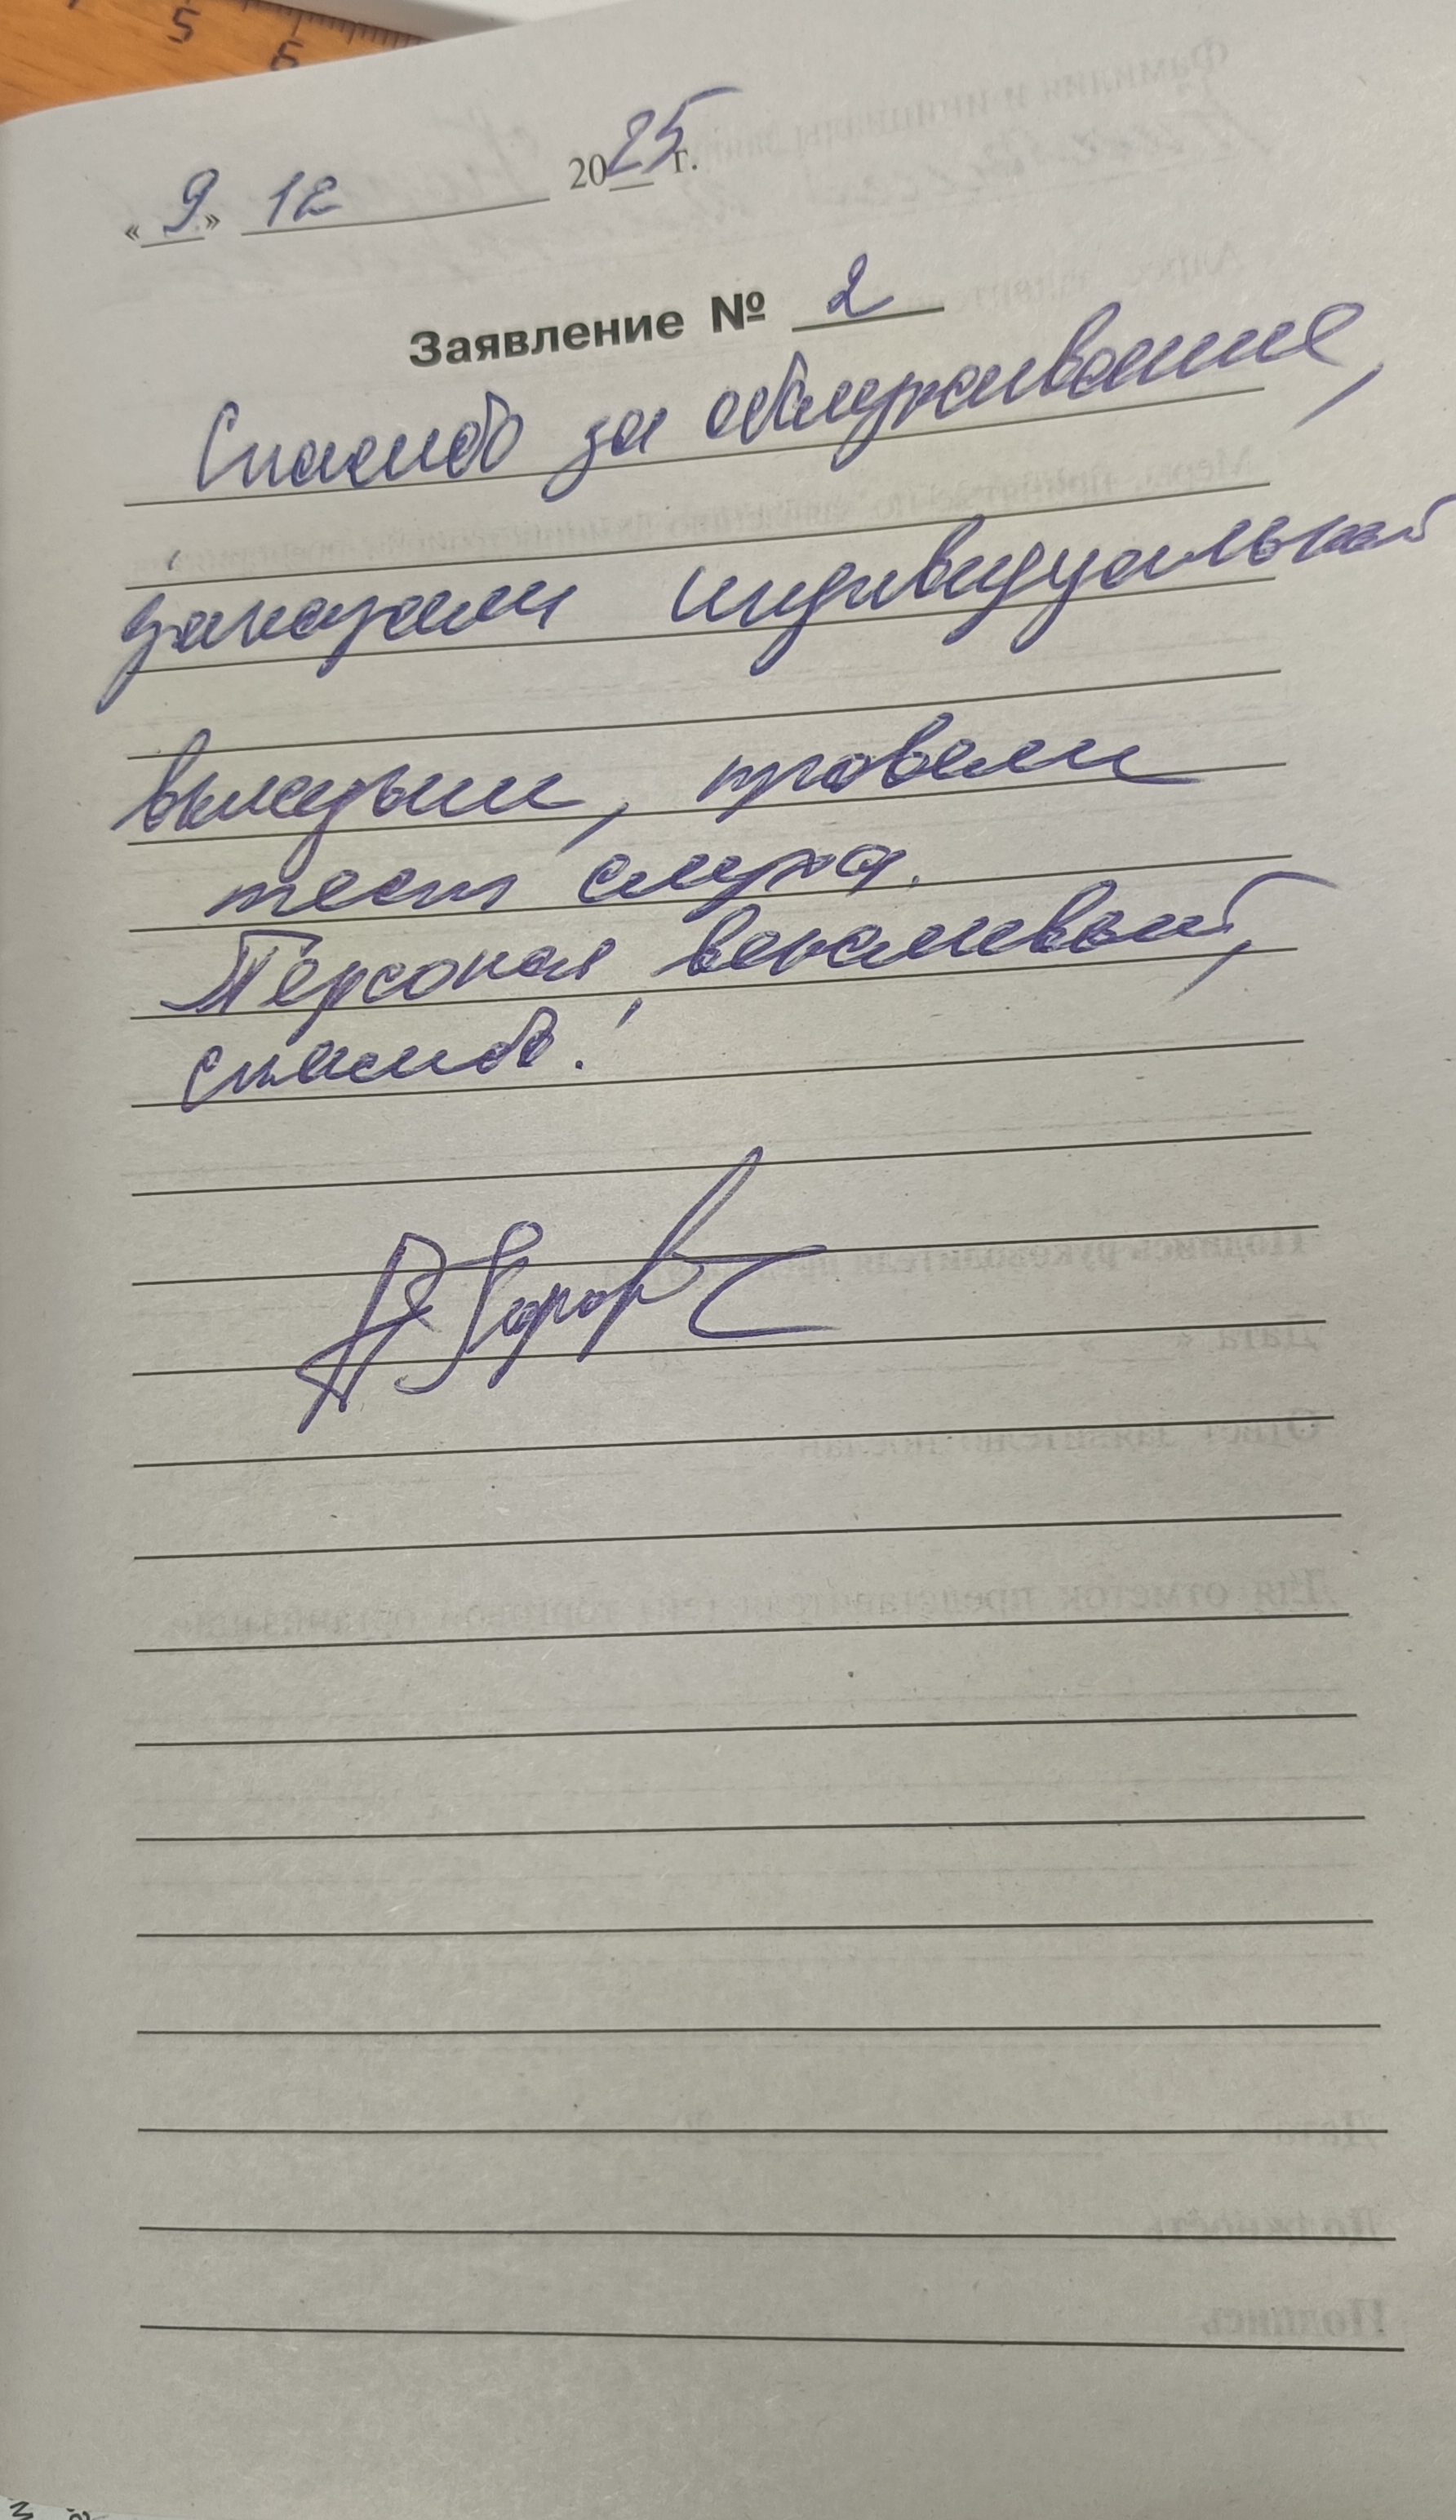 5 6
« 9 » 12 2025 г.
Заявление № 2
Спасибо за обслуживание,
заказали индивидуальный
вкладыш, провели
тест слуха.
Персонал вежливый,
спасибо!